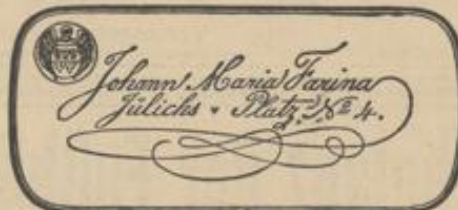 Johann Maria Farina
Jülichs - Platz № 4.